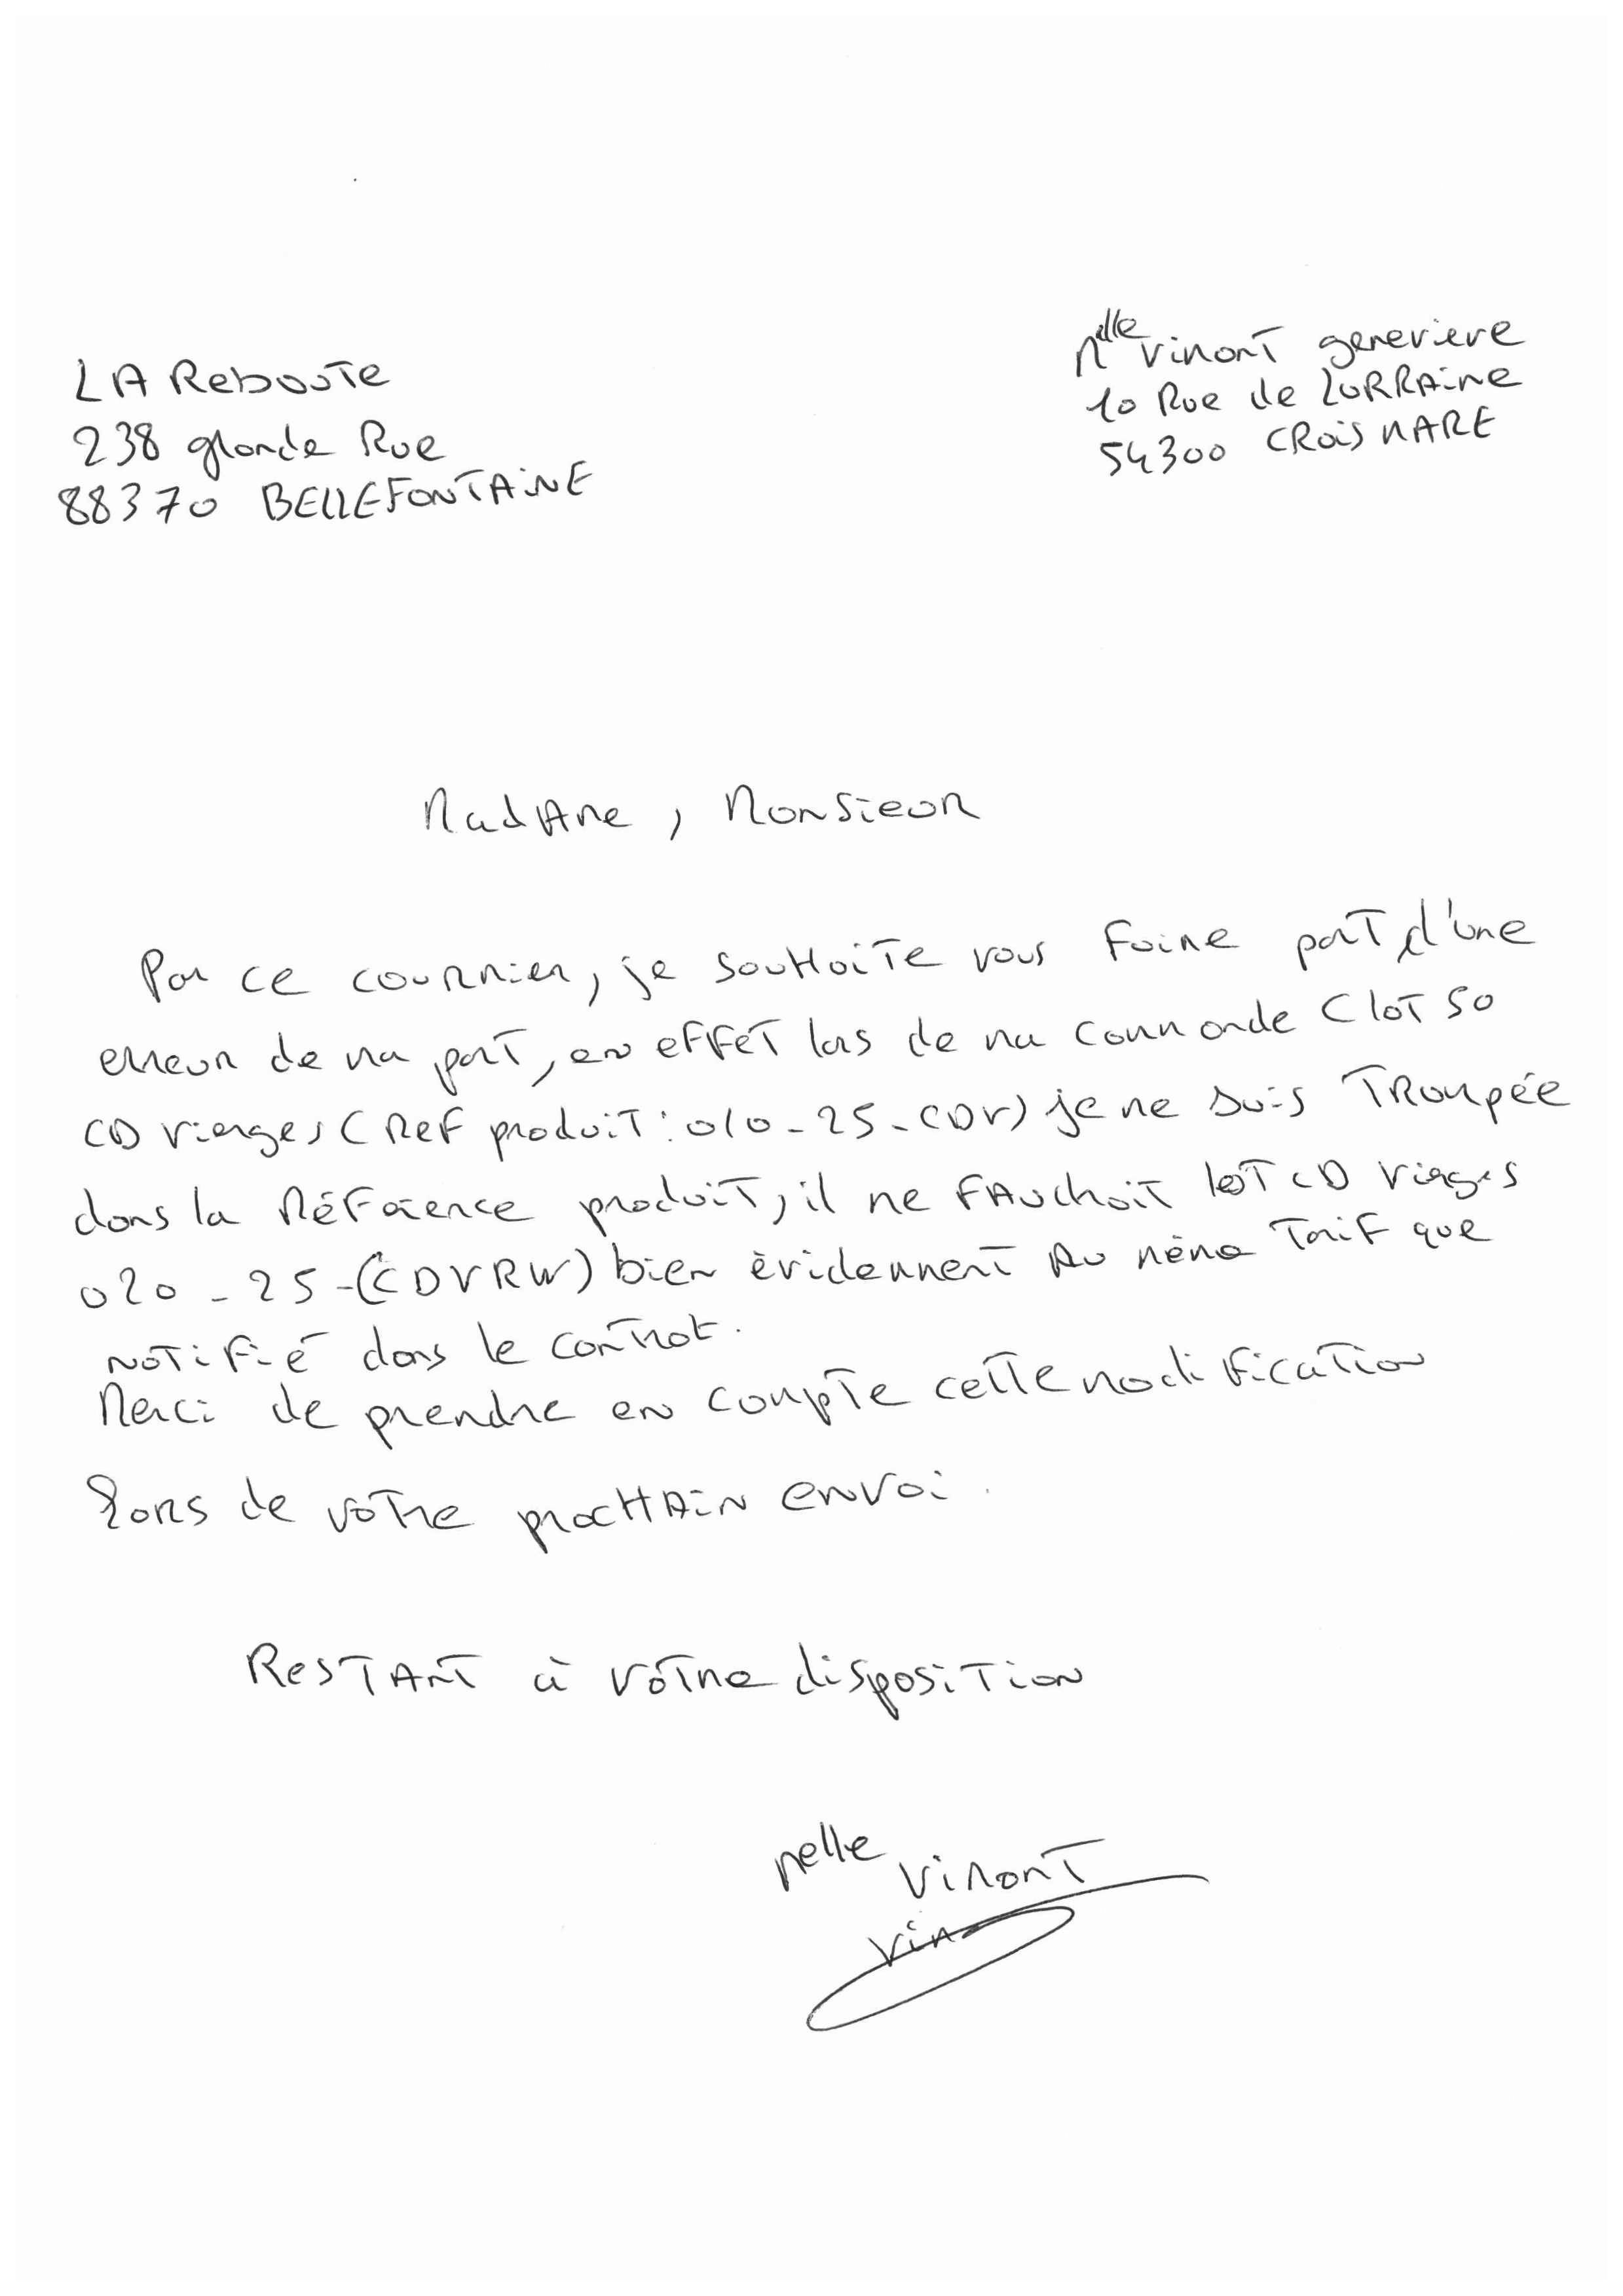 LA Reboute
238 grande Rue
88370 BELLEFONTAINE
Melle Vimont genevieve
10 Rue de LORRAine
54300 CROiSMARE
MadAme, Monsieur
Par ce courrier, je souHaiTe vous Faire part d'une
erreur de ma part, en effet lors de ma commande (lot 50
CD vierges (Ref produit : 010-25-CDV) je me suis Trompée
dans la Référence produit, il me FAudrait lot CD vierges
020-25-(CDVRW) bien évidemment Au même Tarif que
notifié dans le contrat.
Merci de prendre en compte cette modification
Lors de votre procHAin envoi.
ResTANT à vôtre disposition
Melle Vimont
Vim